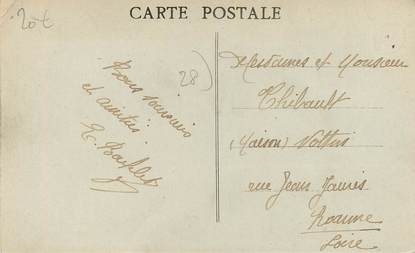 CARTE POSTALE
20€
28)
Bons souvenirs
et amitiés
Mesdames et Monsieur
Thibault
(Maison)
rue Jean Jaurès
Roanne
Loire